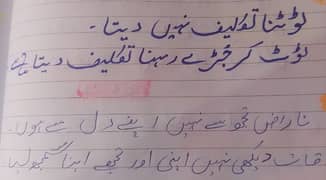 ٹوٹنا تکلیف نہیں دیتا۔
ٹوٹ کر جُڑے رہنا تکلیف دیتا ہے
ناراض تجھ سے نہیں اپنے دل سے ہوں۔
اوقات دیکھی نہیں اپنی اور تجھے اپنا سمجھ لیا